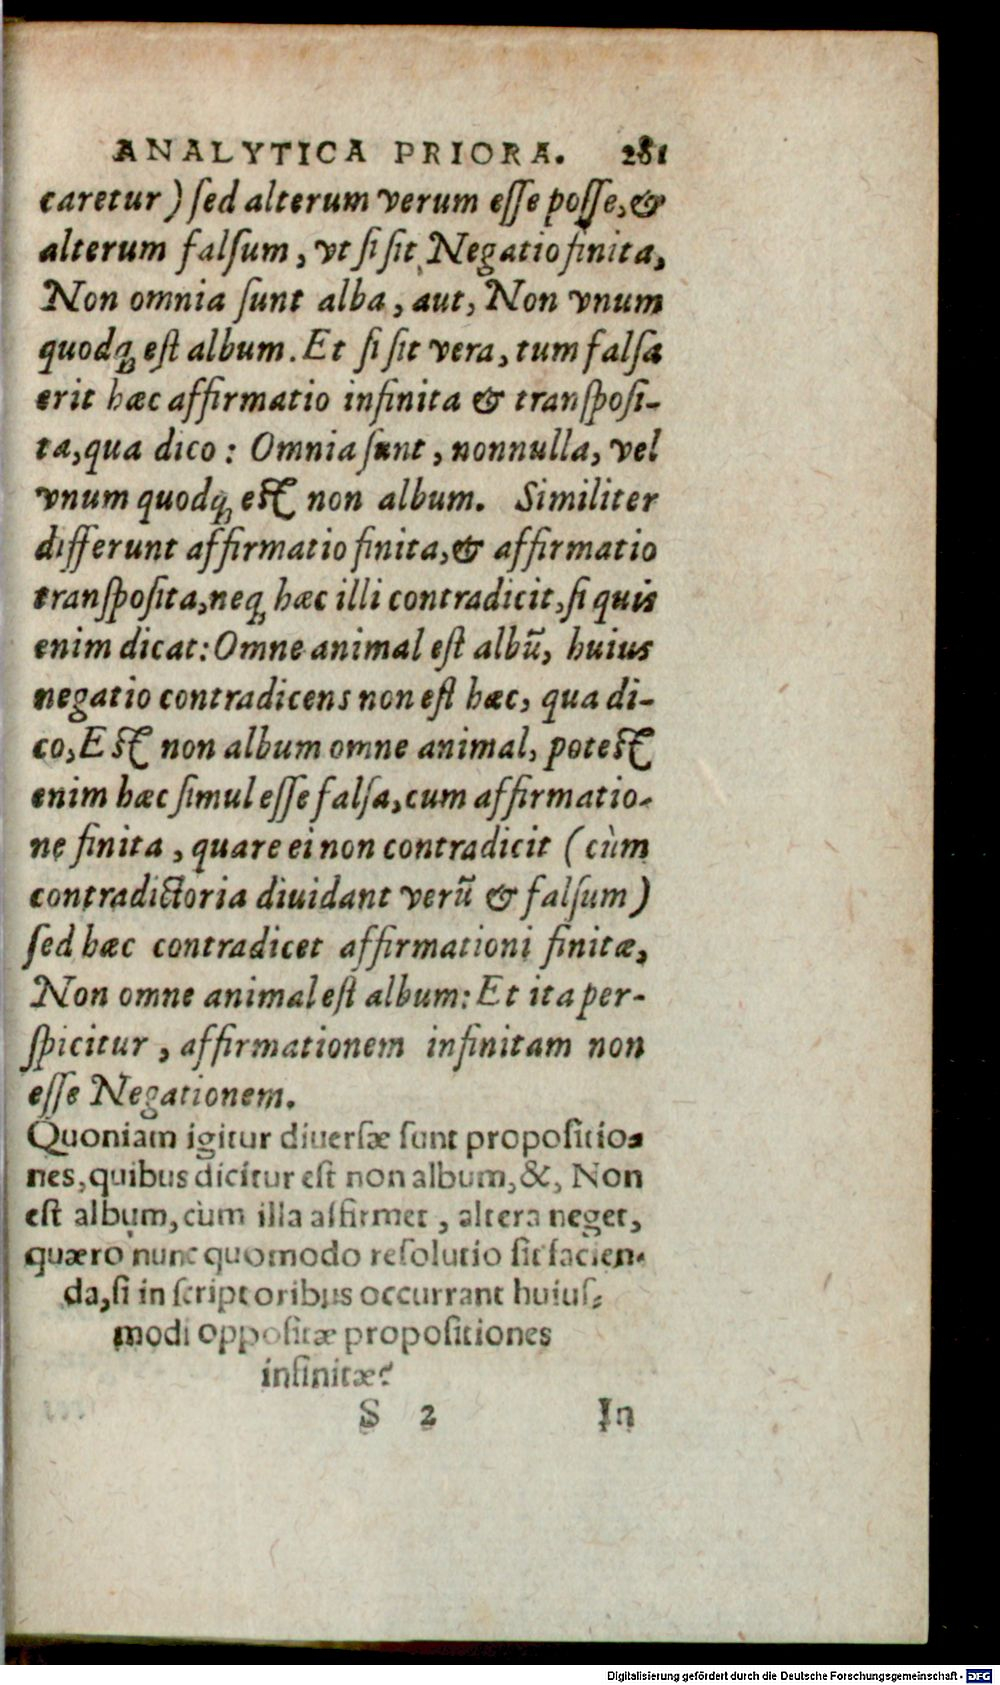 ANALYTICA PRIORA. 281
caretur) ſed alterum verum eſſe poſſe, &
alterum falſum, vt ſi ſit Negatio finita,
Non omnia ſunt alba, aut, Non vnum
quodq; eſt album. Et ſi ſit vera, tum falſa
erit hæc affirmatio infinita & tranſpoſi-
ta, qua dico: Omnia ſunt, nonnulla, vel
vnum quodq; eſt non album. Similiter
differunt affirmatio finita, & affirmatio
tranſpoſita, neq; hæc illi contradicit, ſi quis
enim dicat: Omne animal eſt albũ, huius
negatio contradicens non eſt hæc, qua di-
co, Eſt non album omne animal, poteſt
enim hæc ſimul eſſe falſa, cum affirmatio-
ne finita, quare ei non contradicit (cùm
contradictoria diuidant verũ & falſum)
ſed hæc contradicet affirmationi finitæ,
Non omne animal eſt album: Et ita per-
ſpicitur, affirmationem infinitam non
eſſe Negationem.
Quoniam igitur diuerſæ ſunt propoſitio-
nes, quibus dicitur eſt non album, &, Non
eſt album, cùm illa affirmet, altera neget,
quæro nunc quomodo reſolutio ſit facien-
da, ſi in ſcriptoribus occurrant huiuſ-
modi oppoſitæ propoſitiones
infinitæ?
S 2 In
Digitalisierung gefördert durch die Deutsche Forschungsgemeinschaft - DFG